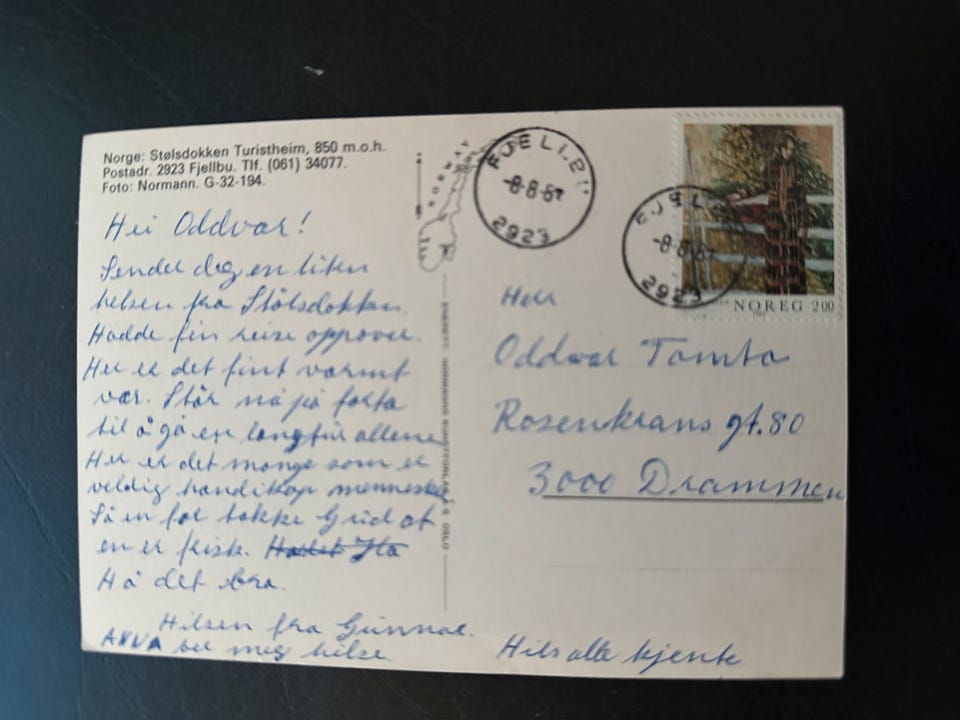 Norge: Stølsdokken Turistheim, 850 m.o.h.
Postadr. 2923 Fjellbu. Tlf. (061) 34077.
Foto: Normann. G-32-194.
NORWAY
FJELLBU
-8-8-87
2923
FJELLBU
-8-8-87
2923
NOREG 2.00
Hei Oddvar!
Sender deg en liten
helsen fra Stølsdokken.
Hadde fin reise oppover.
Her er det fint varmt
vær. Står nå på farta
til å gå en langtur allene
Her er det mange som er
veldig handikap menneske
Så en før takke Gud at
en er frisk.
Ha det bra.
Hilsen fra Gunnar.
ANNA bet meg hilse
ENERETT: NORMANNS KUNSTFORLAG A.S OSLO
Herr
Oddvar Tomta
Rosenkrans gt. 80
3000 Drammen
Hils alle kjente